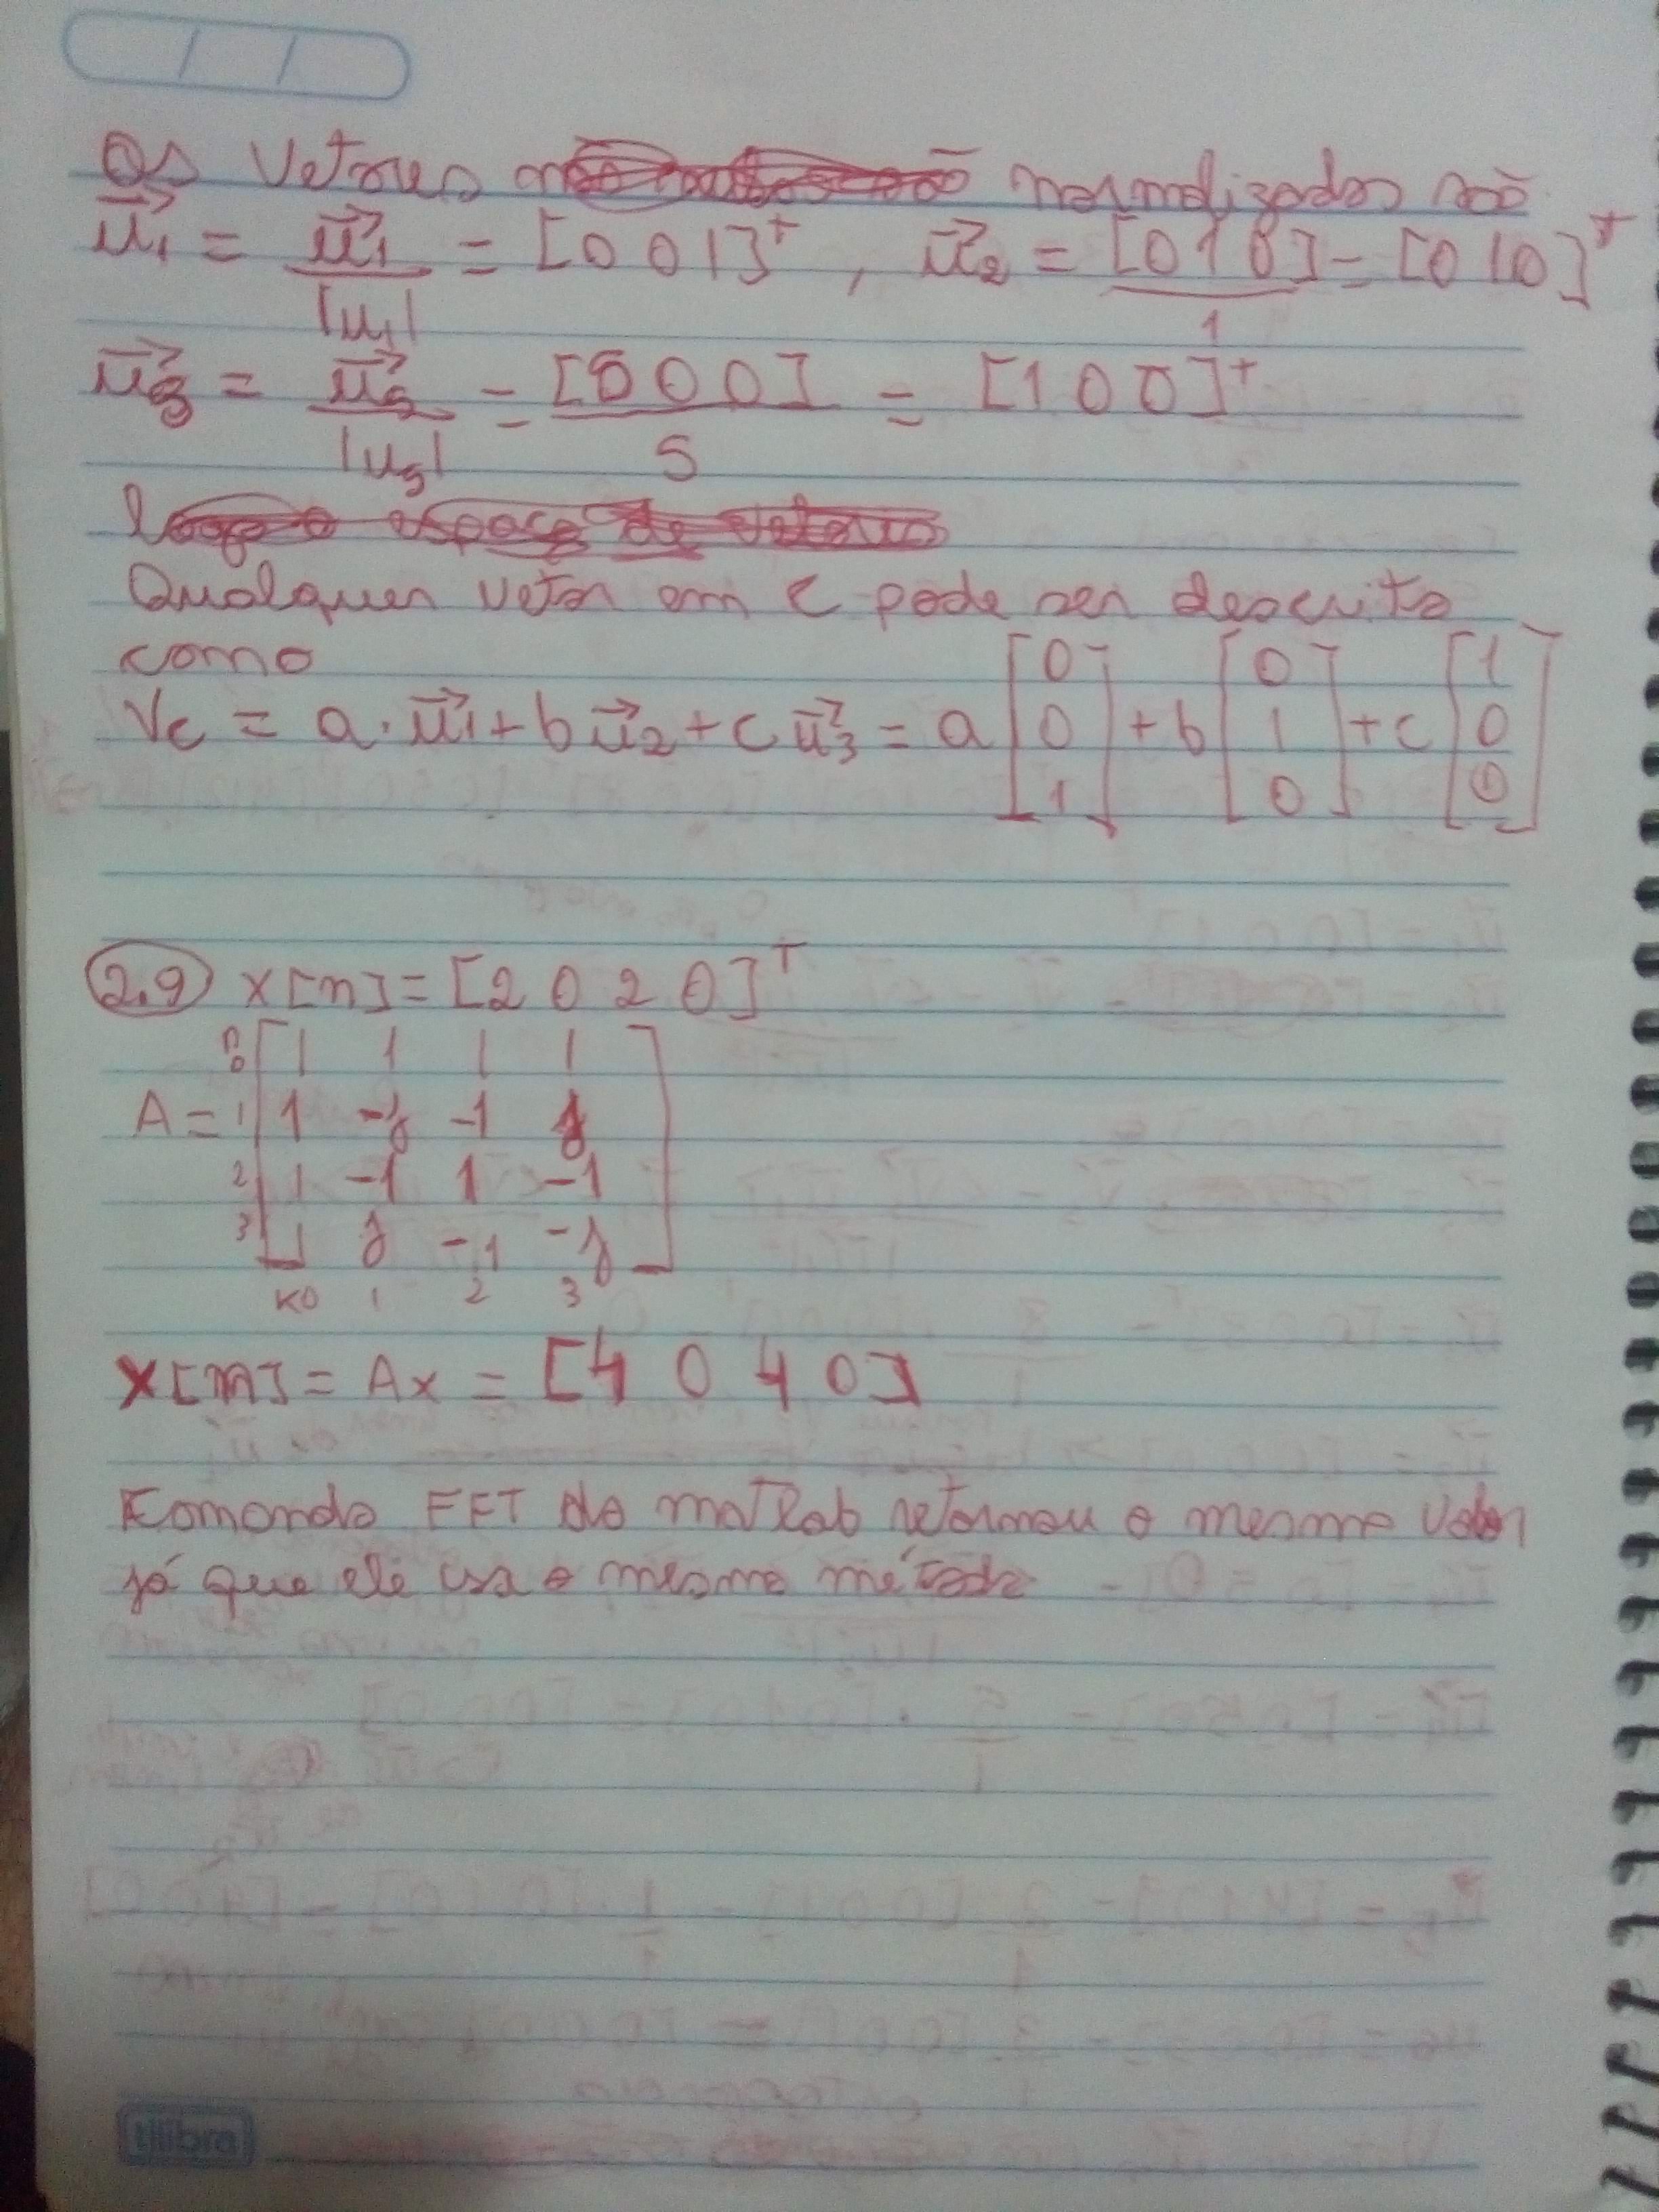 Os Vetores normalizados são
u⃗1 = u⃗1 / |u1| = [0 0 1]ᵀ , u⃗2 = [0 1 0] / 1 = [0 1 0]ᵀ
u⃗3 = u⃗5 / |u5| = [5 0 0] / 5 = [1 0 0]ᵀ
Qualquer vetor em C pode ser descrito
como
Vc = a·u⃗1 + b u⃗2 + c u⃗3 = a [0 0 1] + b [0 1 0] + c [1 0 0]
2.9 x[n] = [2 0 2 0]ᵀ
n 0 [1 1 1 1
A = 1 1 -j -1 j
2 1 -1 1 -1
3 1 j -1 -j]
K0 1 2 3
X[m] = Ax = [4 0 4 0]
Comando FFT do matlab retornou o mesmo valor
já que ele usa o mesmo método
tilibra